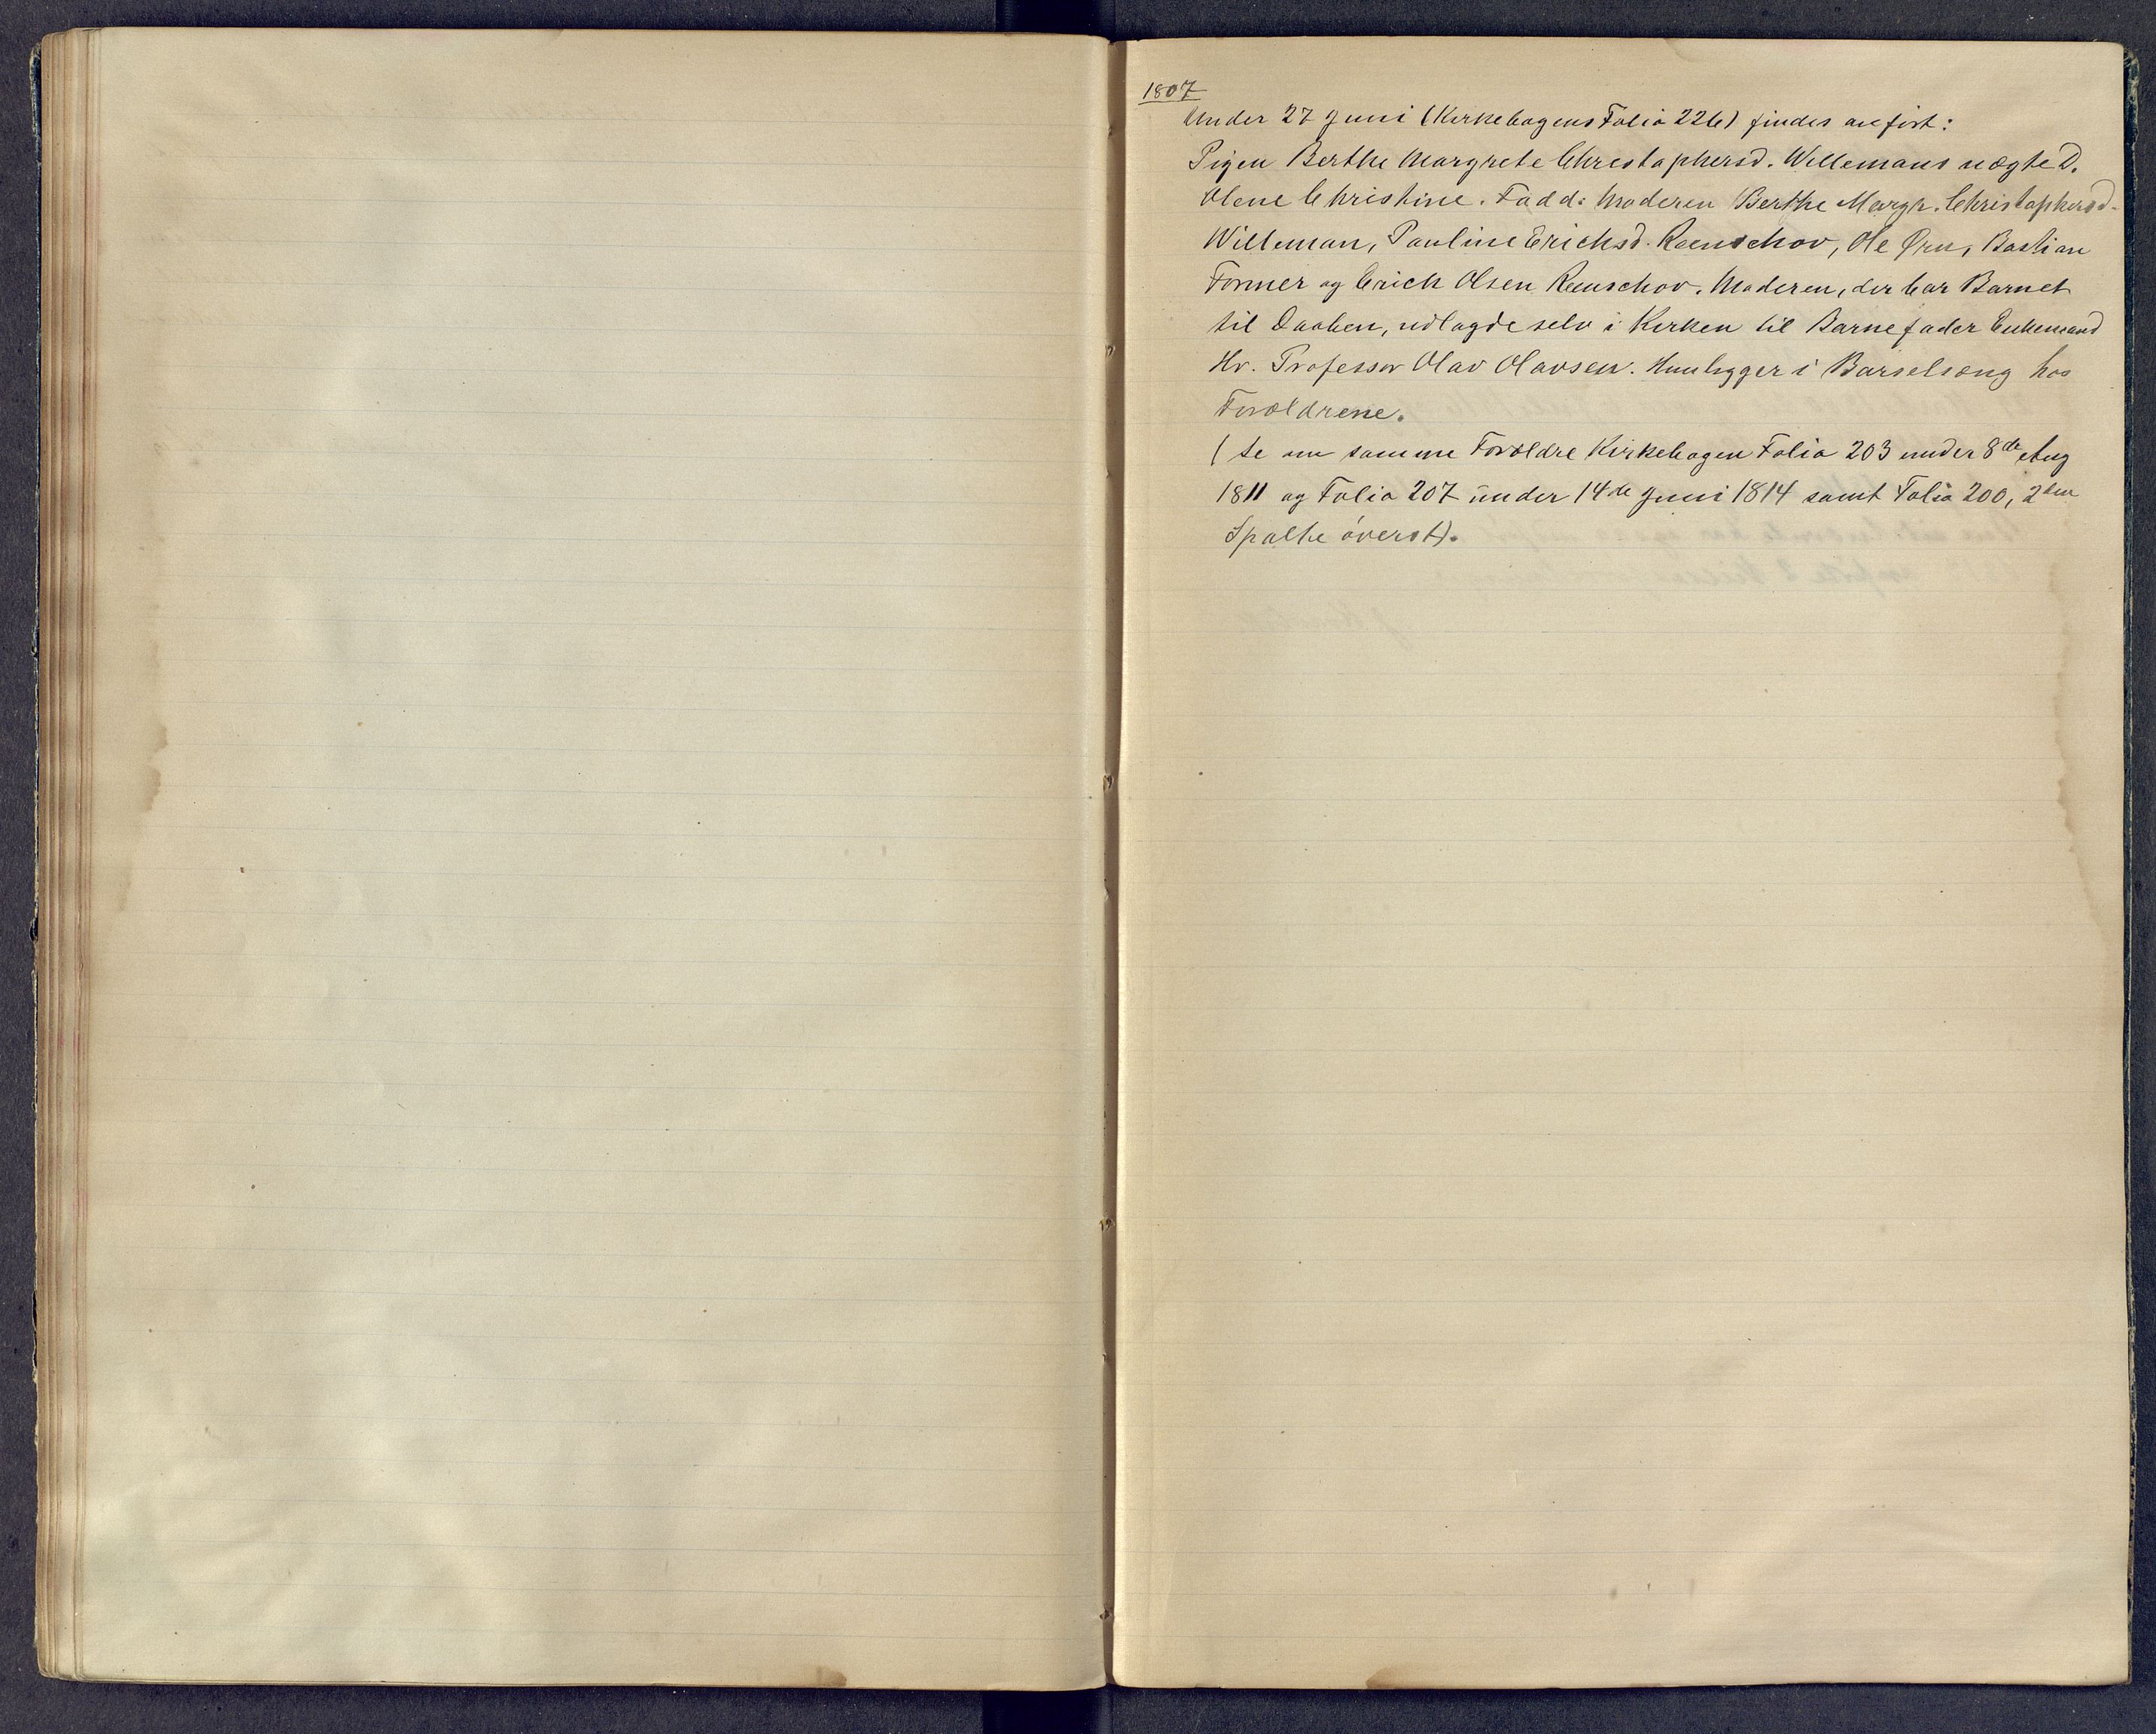 1807
Under 27 Juni (Kirkebogens Folio 226) findes anført:
Pigen Berthe Margrete Christophersd. Willemans uægte D.
Olene Christine. Fadd: Moderen Berthe Margr. Christophersd.
Willeman, Pauline Erichsd. Reenschov, Ole Ørn, Bastian
Former og Erich Olsen Reenschov. Moderen, der bar Barnet
til Daaben, udlagde selv i Kirken til Barnefader Enkemand
Hr. Professor Olav Olavsen. Hun ligger i Barselsæng hos
Forældrene.
(se om samme Forældre Kirkebogen Folio 203 under 8de Aug
1811 og Folio 207 under 14de Juni 1814 samt Folio 200, 2den
Spalte överst).